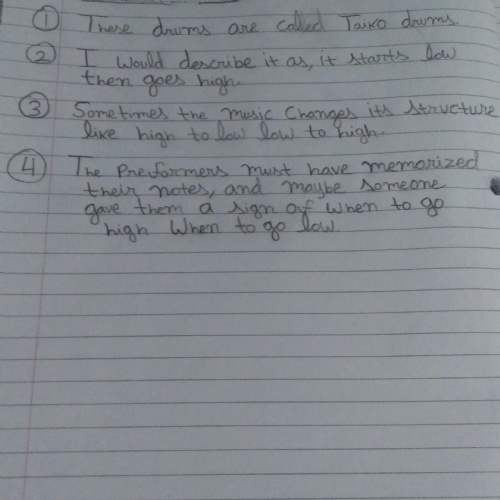 ① These drums are called Taiko drums.
② I would describe it as, it starts low
then goes high.
③ Sometimes the music changes its structure
like high to low low to high.
④ The Preformers must have memorized
their notes, and maybe someone
gave them a sign of when to go
high When to go low.